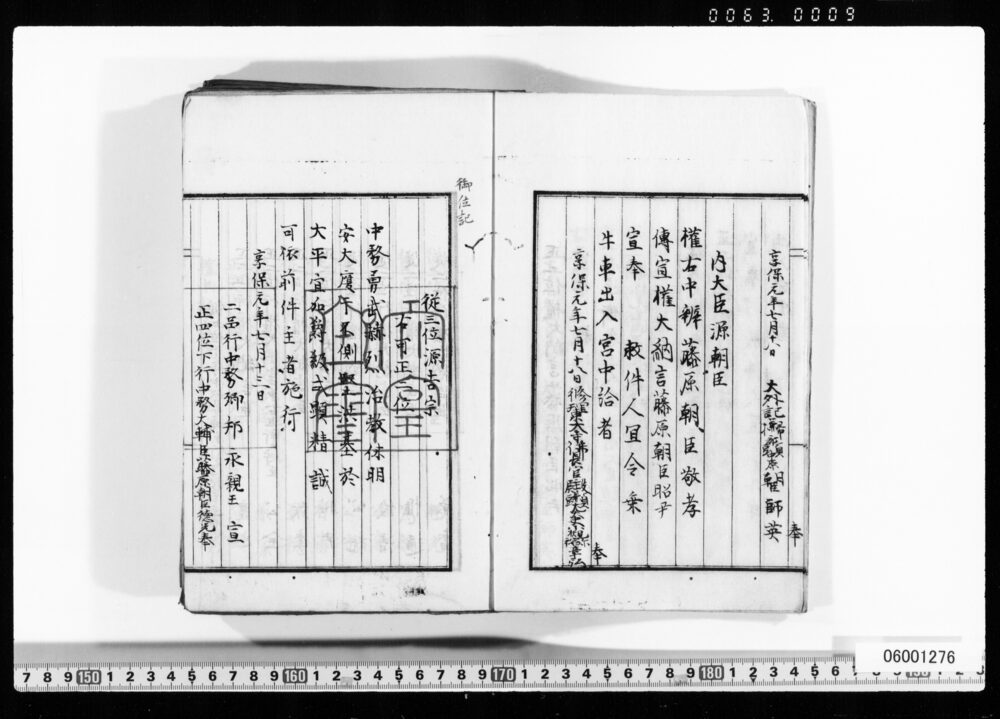 0063. 0009
享保元年七月十八日 大外記 師英 奉
内大臣源朝臣
權右中辨藤原朝臣敬孝
傳宣權大納言藤原朝臣昭尹
宣奉 敕件人宜令乗
牛車出入宮中給者
享保元年七月十八日修理 奉
御位記
從三位源吉宗
右可正二位
中務勇武赫烈治教休明
安大廈 側 基於
大平宜加爵級式顯精誠
可依前件主者施行
享保元年七月十三日
二品行中務卿邦永親王宣
正四位下行中務大輔臣藤原朝臣德光奉
7 8 9 150 1 2 3 4 5 6 7 8 9 160 1 2 3 4 5 6 7 8 9 170 1 2 3 4 5 6 7 8 9 180 1 2 3 4 5 6
06001276